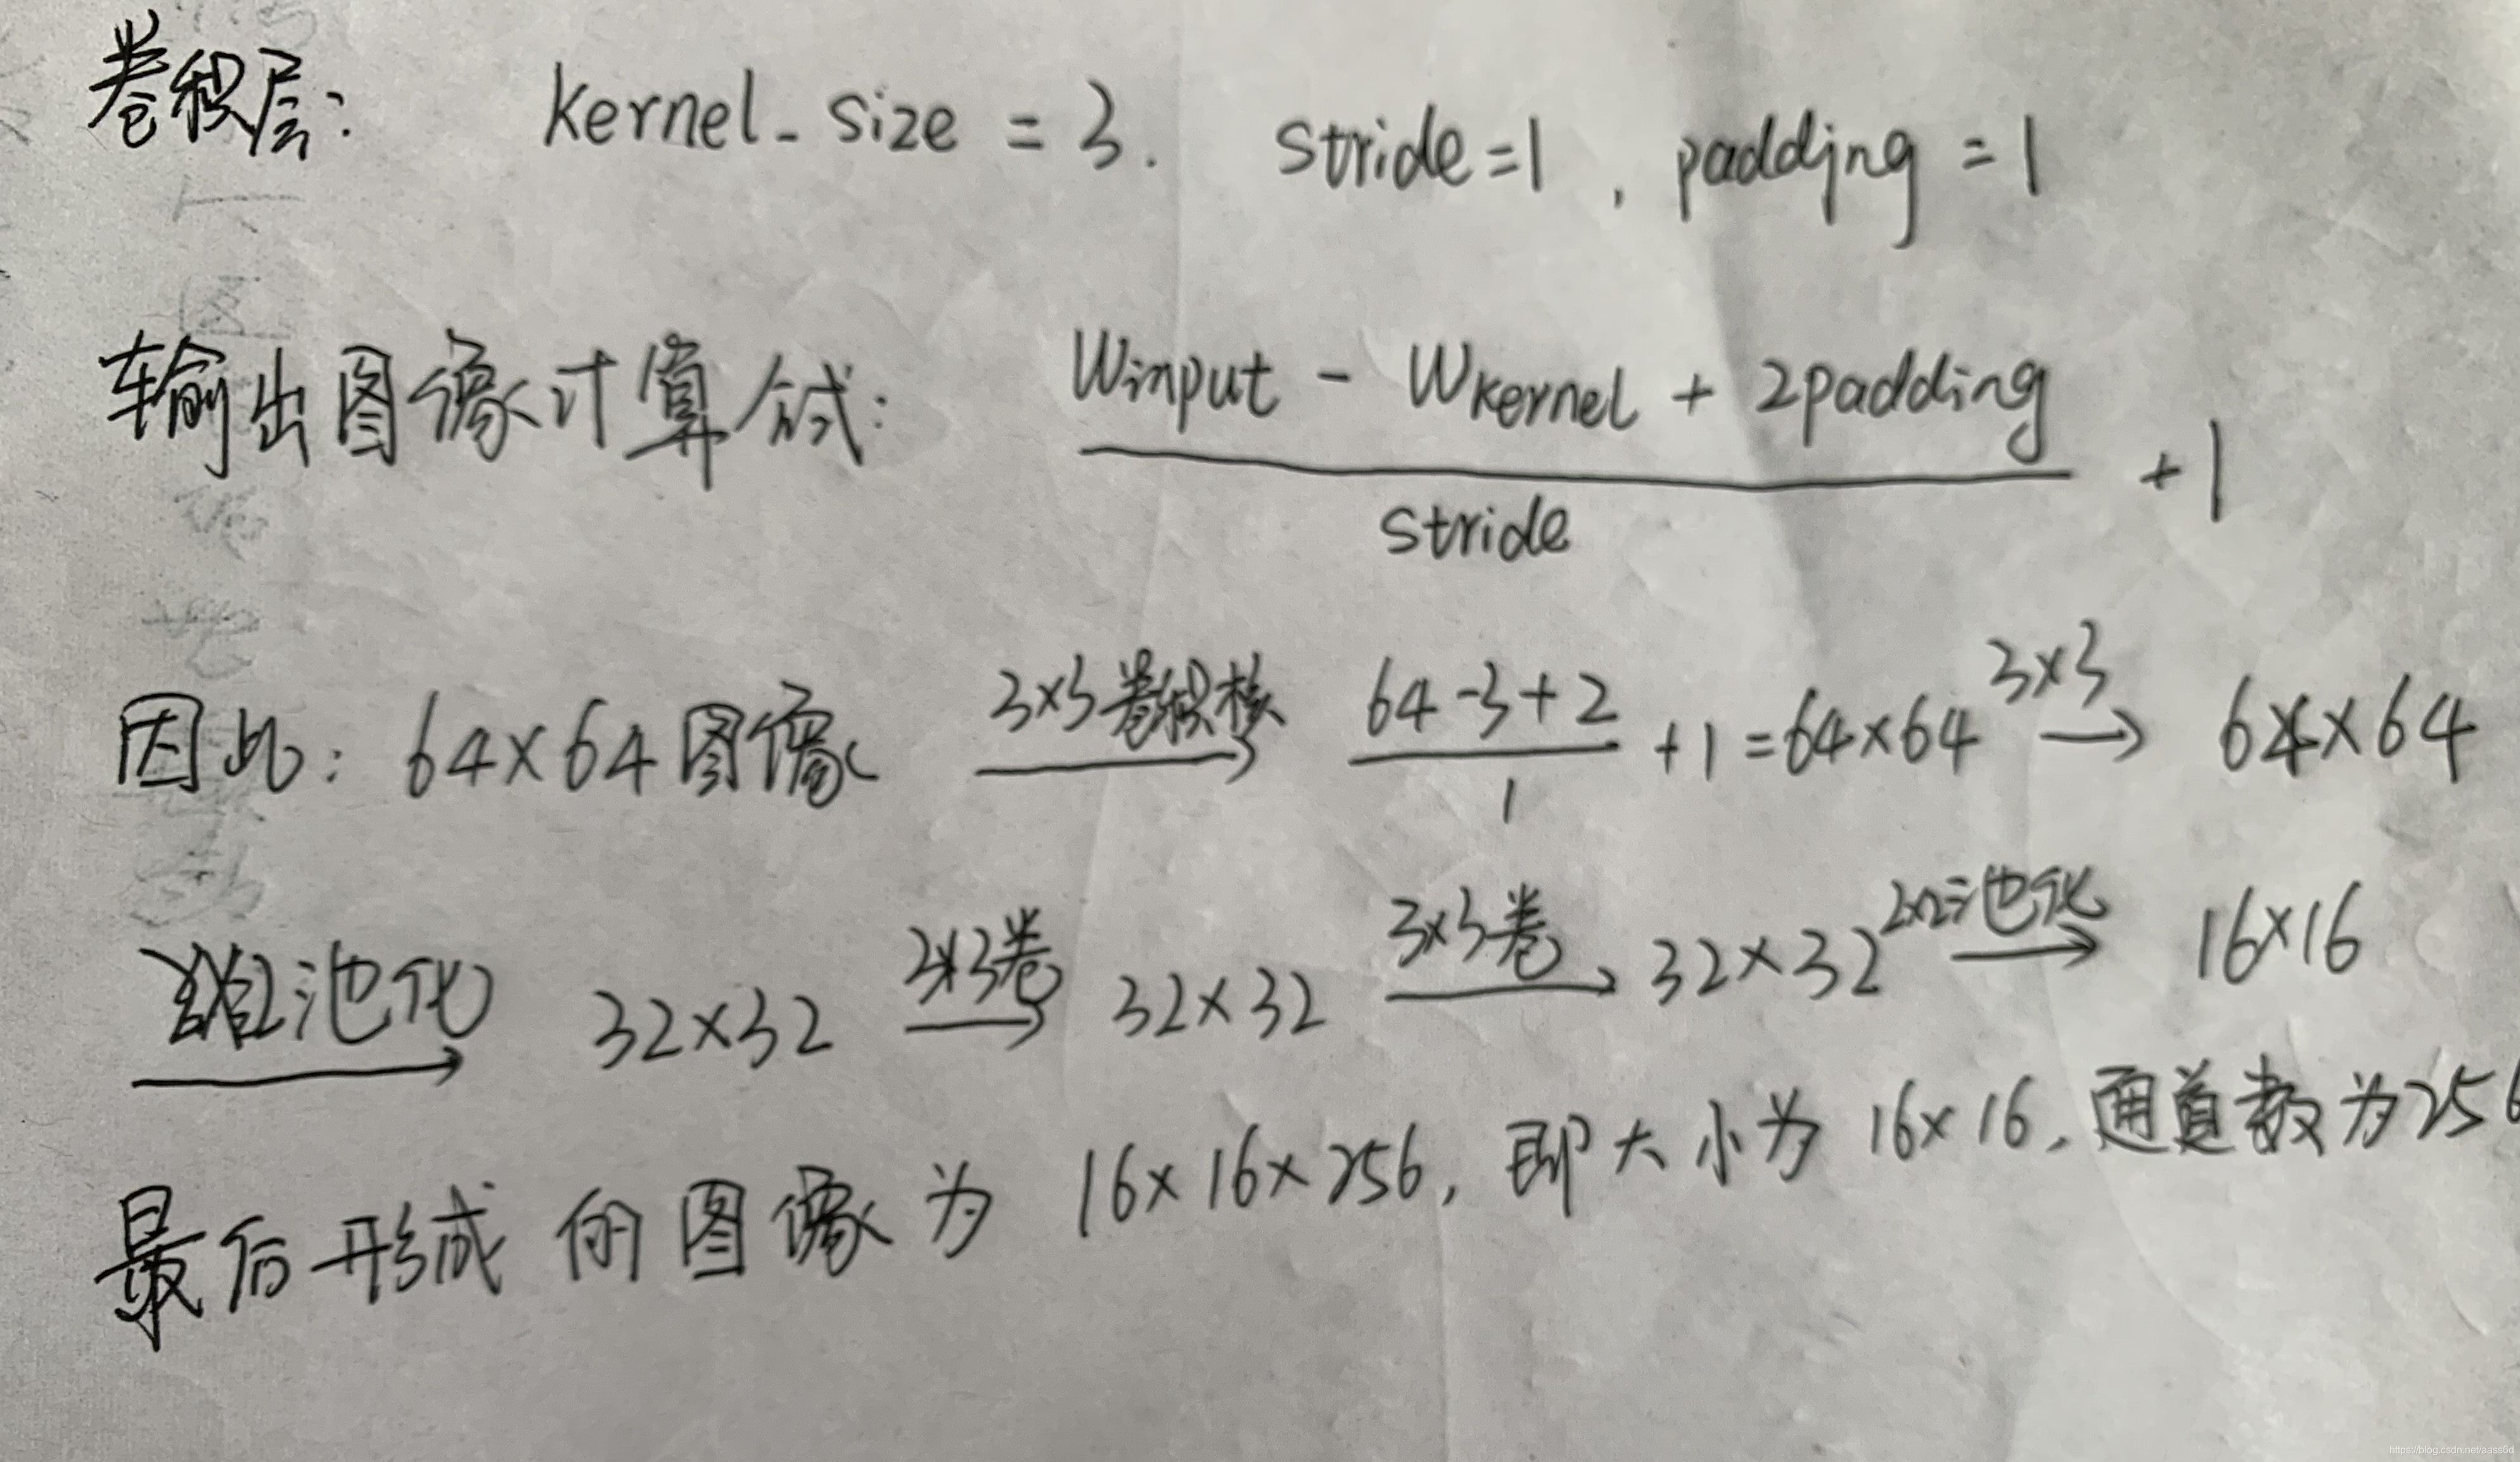 卷积层: kernel_size = 3. stride=1 , padding = 1
输出图像计算公式: (Winput - Wkernel + 2padding) / stride + 1
因此: 64×64图像 3×3卷积核→ (64-3+2) / 1 +1 = 64×64 3×3→ 64×64
池化→ 32×32 3×3卷→ 32×32 3×3卷→ 32×32 2×2池化→ 16×16
最后形成的图像为 16×16×256, 即大小为 16×16, 通道数为256
https://blog.csdn.net/aass6d